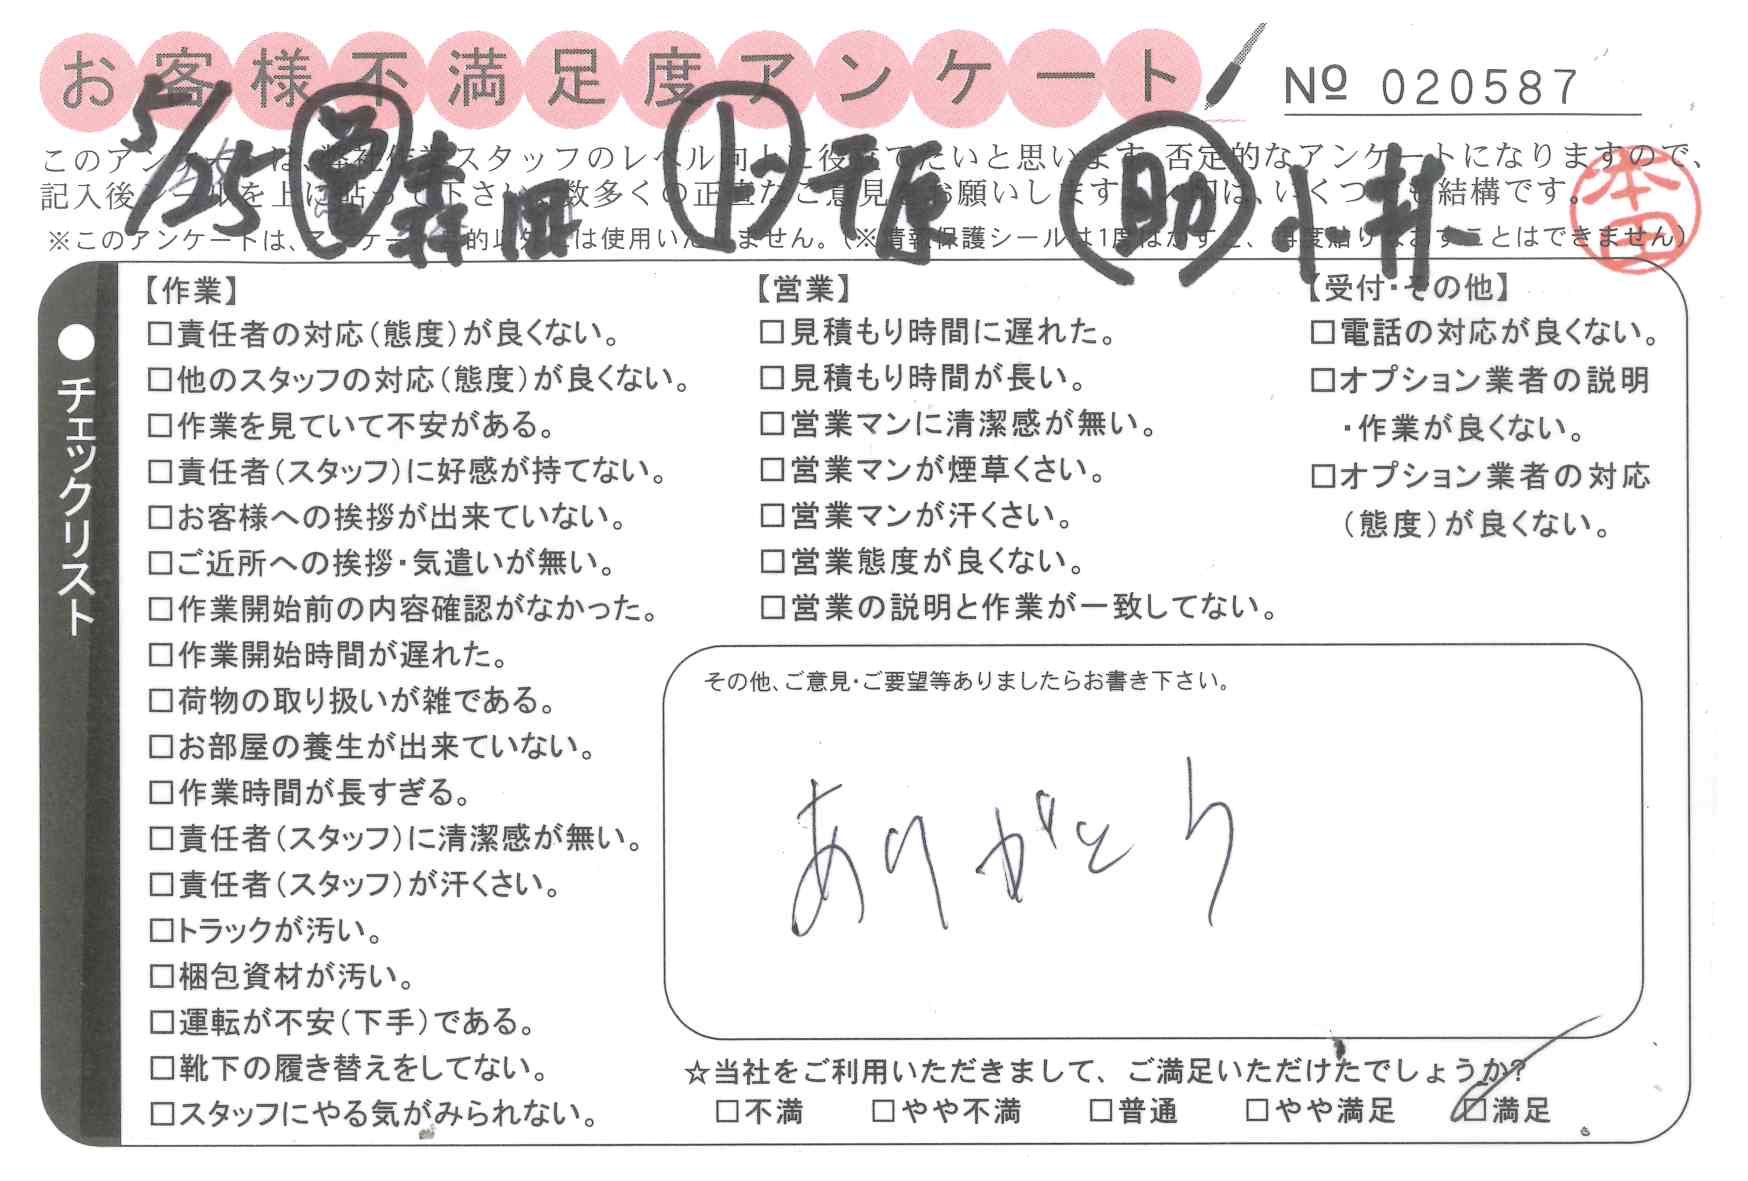 お客様不満足度アンケート
№ 020587
5/25 営 森田 ト 千原 助 小村
本田
このアンケートは、弊社作業スタッフのレベル向上に役立てたいと思います。否定的なアンケートになりますので、
記入後シールを上に貼って下さい。数多くの正直なご意見をお願いします。 は、いくつでも結構です。
※このアンケートは、アンケート目的以外には使用いたしません。(※情報保護シールは1度はがすと、再度貼りなおすことはできません)
●チェックリスト
【作業】
□責任者の対応(態度)が良くない。
□他のスタッフの対応(態度)が良くない。
□作業を見ていて不安がある。
□責任者(スタッフ)に好感が持てない。
□お客様への挨拶が出来ていない。
□ご近所への挨拶・気遣いが無い。
□作業開始前の内容確認がなかった。
□作業開始時間が遅れた。
□荷物の取り扱いが雑である。
□お部屋の養生が出来ていない。
□作業時間が長すぎる。
□責任者(スタッフ)に清潔感が無い。
□責任者(スタッフ)が汗くさい。
□トラックが汚い。
□梱包資材が汚い。
□運転が不安(下手)である。
□靴下の履き替えをしてない。
□スタッフにやる気がみられない。
【営業】
□見積もり時間に遅れた。
□見積もり時間が長い。
□営業マンに清潔感が無い。
□営業マンが煙草くさい。
□営業マンが汗くさい。
□営業態度が良くない。
□営業の説明と作業が一致してない。
【受付・その他】
□電話の対応が良くない。
□オプション業者の説明
・作業が良くない。
□オプション業者の対応
(態度)が良くない。
その他、ご意見・ご要望等ありましたらお書き下さい。
ありがとう
☆当社をご利用いただきまして、ご満足いただけたでしょうか?
□不満 □やや不満 □普通 □やや満足 ☑満足